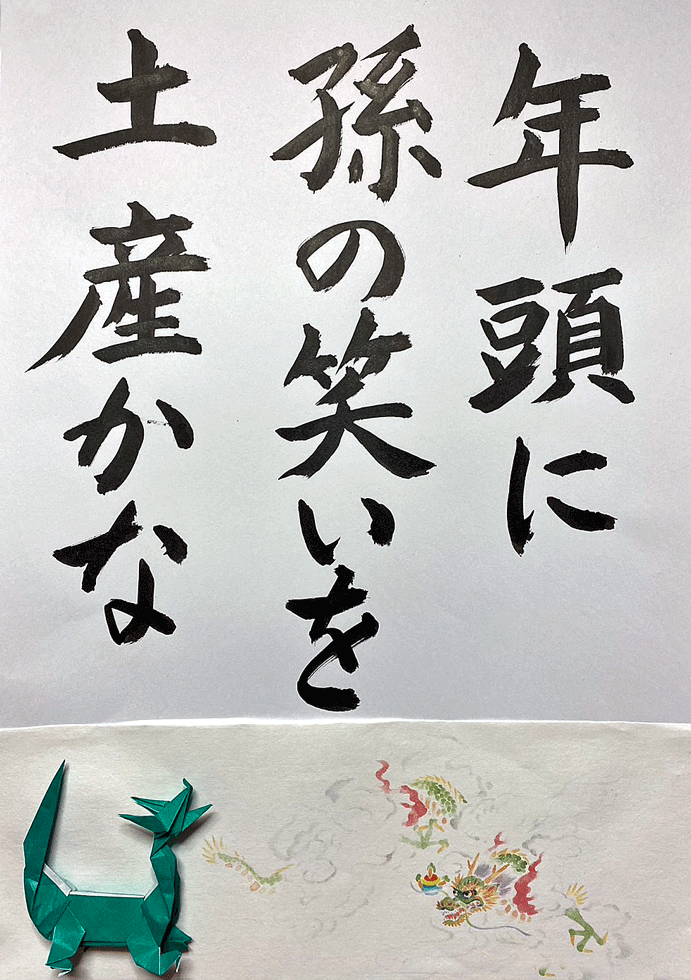 年頭に
孫の笑いを
土産かな